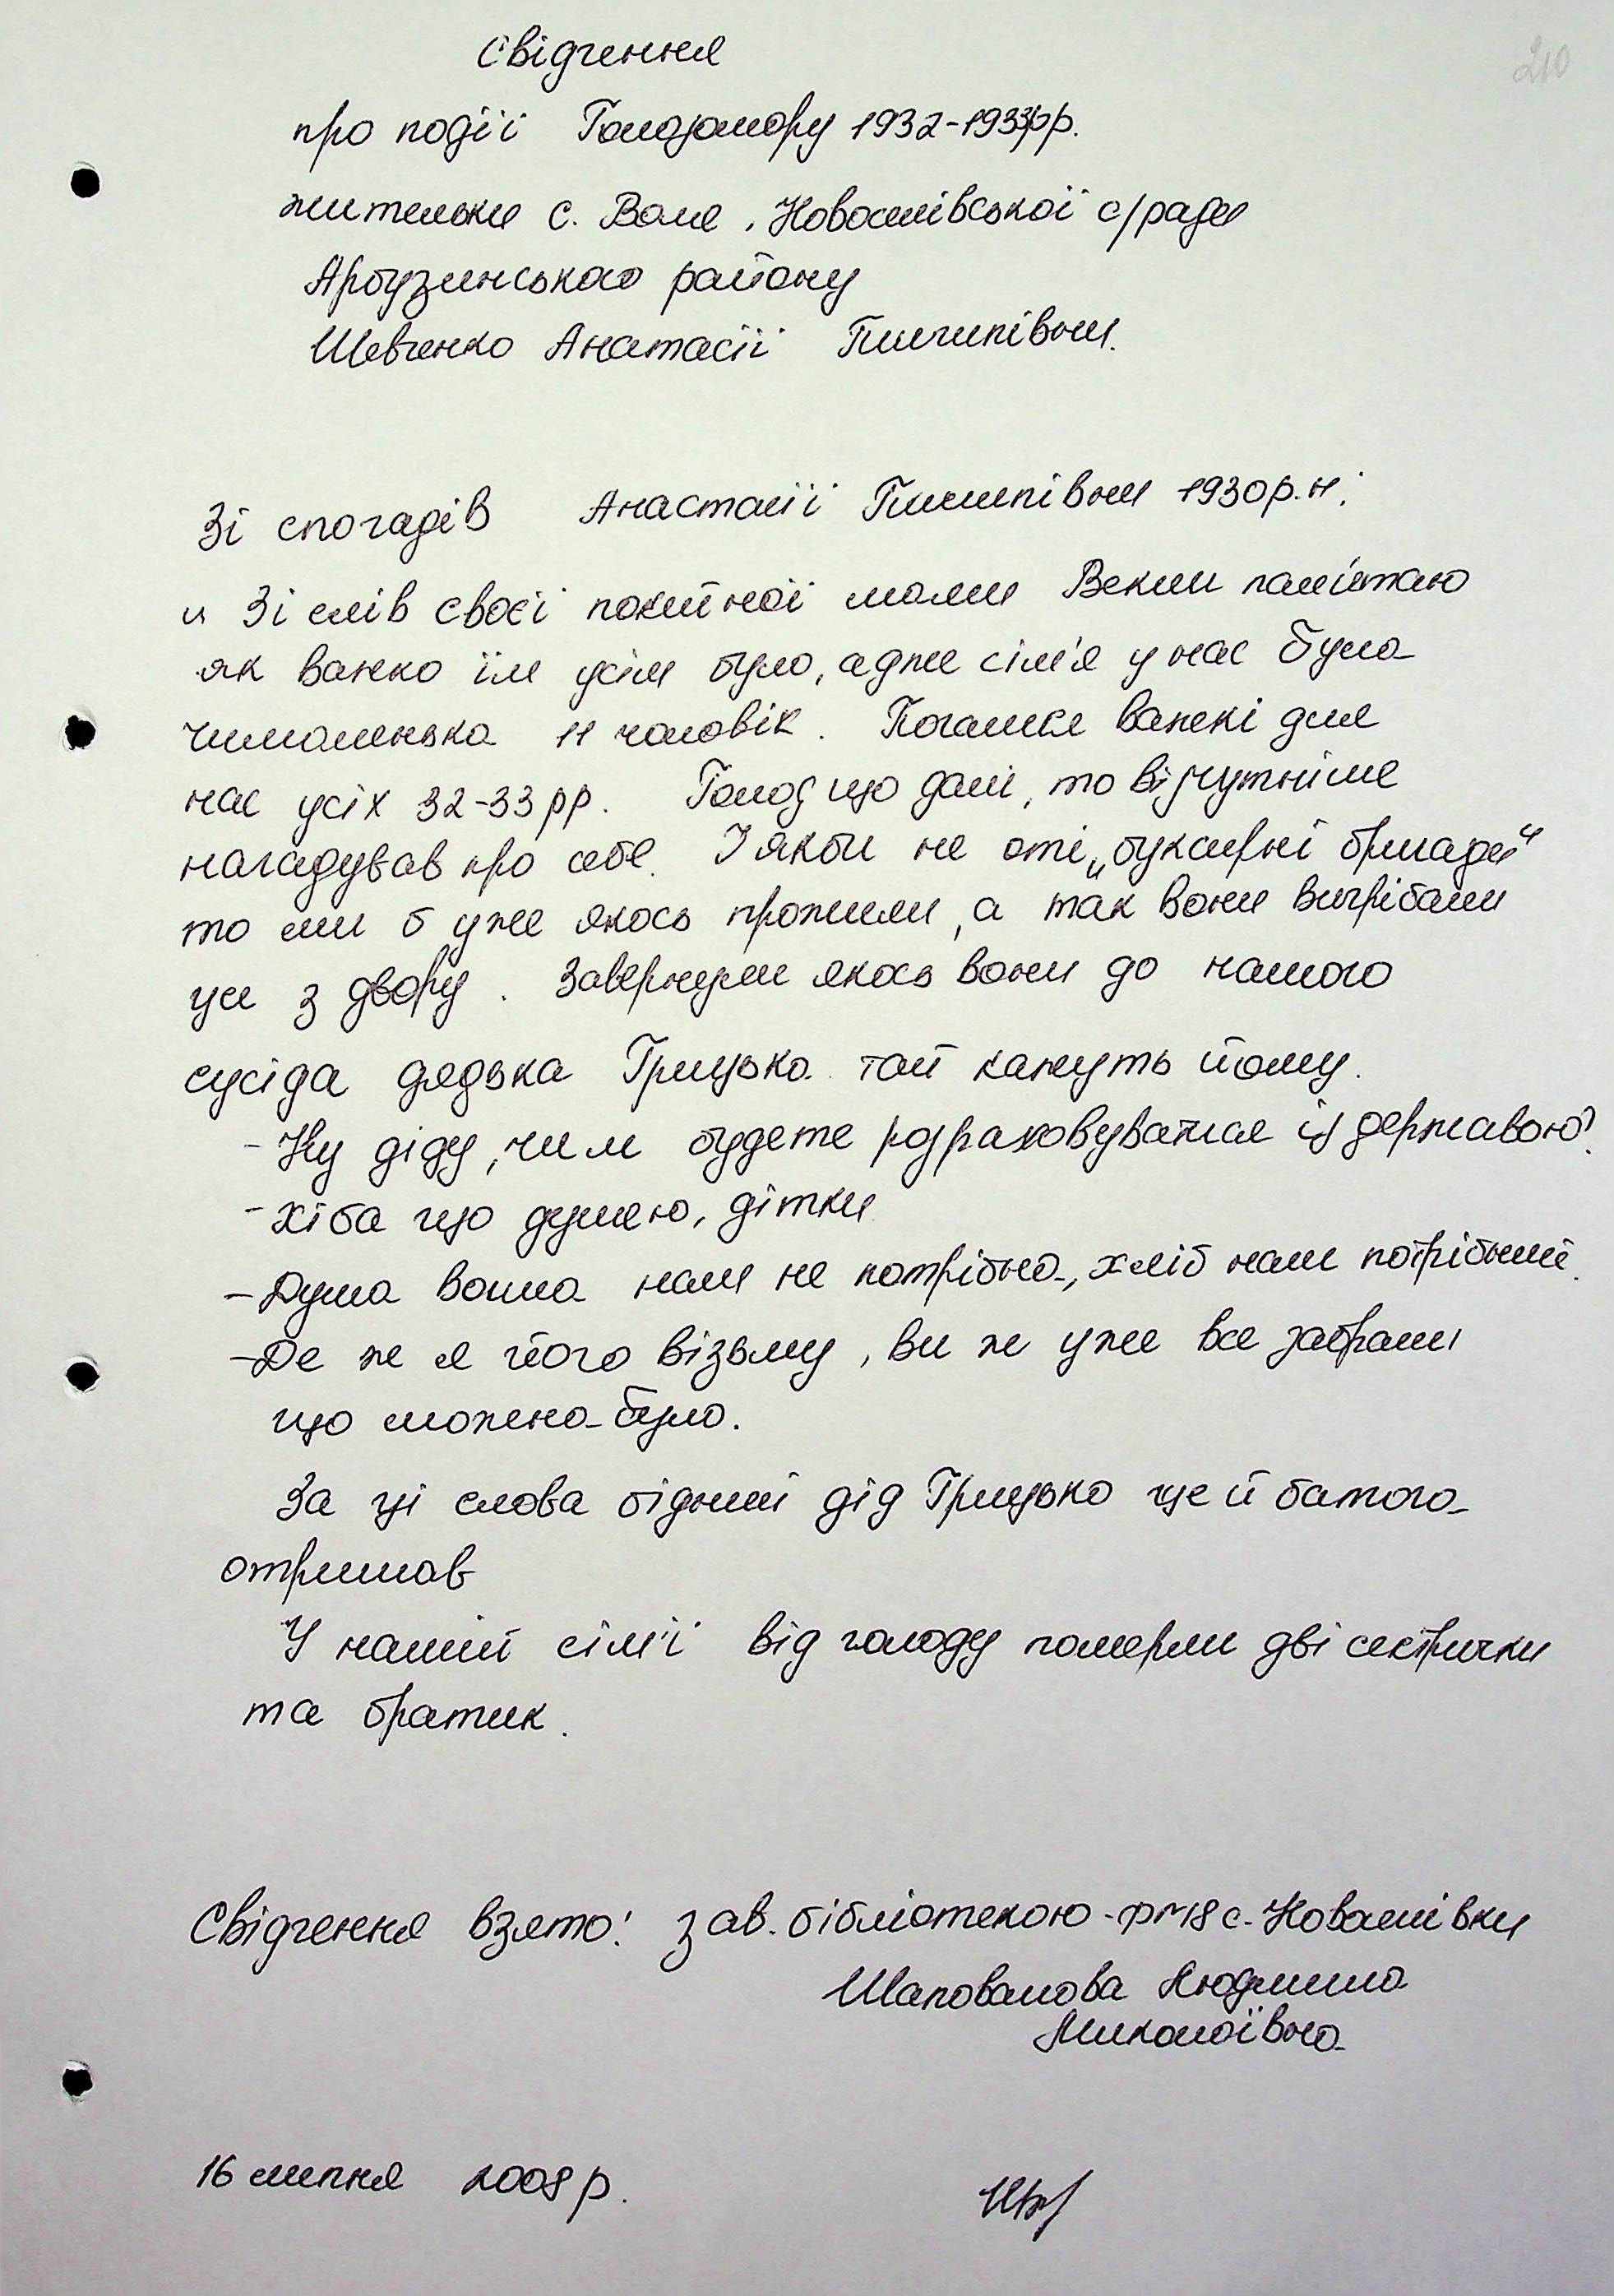 210
Свідчення
про події Голодомору 1932-1933рр.
жительки с. Воля, Новоселівської с/ради
Арбузинського району
Шевченко Анатасії Пилипівни.
Зі спогадів Анастасії Пилипівни 1930р.н.
„ Зі слів своєї покійної мами Векли памʼятаю
як важко їм усім було, адже сімʼя у нас була
чималенька 11 чоловік. Почалися важкі для
нас усіх 32-33рр. Голод що далі, то відчутніше
нагадував про себе. І якби не оті „буксирні бригади“
то ми б уже якось прожили, а так вони вигрібали
усе з двору. Завернули якось вони до нашого
сусіда дядька Грицька тай кажуть йому.
- Ну діду, чим будете розраховуватися із державою?
- Хіба що душею, дітки
- Душа ваша нам не потрібна, хліб нам потрібний.
- Де ж я його візьму, ви ж уже все забрали
що можна було.
За ці слова бідний дід Грицько ще й батога
отримав
У нашій сімʼї від голоду померли дві сестрички
та братик.
Свідчення взято: зав. бібліотекою-ф№18 с. Новоселівки
Шаповалова Людмила
Миколаївна
16 липня 2008р.